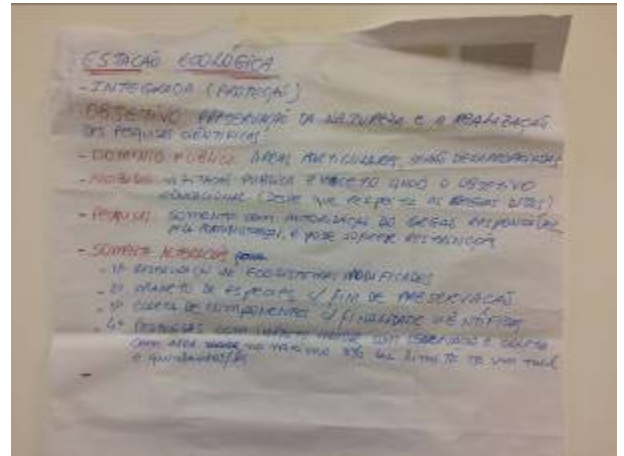 ESTAÇÃO ECOLÓGICA
- INTEGRADA (PROTEÇÃO)
OBJETIVO: PRESERVAÇÃO DA NATUREZA E A REALIZAÇÃO
DAS PESQUISAS CIENTÍFICAS.
- DOMÍNIO PÚBLICO, ÁREAS PARTICULARES, SERÃO DESAPROPRIADAS
- PROIBIDO VISITAÇÃO PÚBLICA EXCETO QNDO O OBJETIVO
EDUCACIONAL (DESDE QUE RESPEITE AS REGRAS
- PESQUISAS SOMENTE COM AUTORIZAÇÃO DO ÓRGÃO RESPONSÁVEL
PELA E PODE SOFRER RESTRIÇÕES
- SOMENTE ALTERAÇÕES para
- 1º DE ECOSSISTEMAS MODIFICADOS
- 2º MANEJO DE ESPÉCIES C/ FIM DE PRESERVAÇÃO
- 3º COLETA DE COMPONENTES C/ FINALIDADE CIENTÍFICA
- 4º PESQUISAS COM IMPACTO MAIOR E
COM ÁREA no máximo 3% LIMITE DE UM MIL
E quinhentos
-